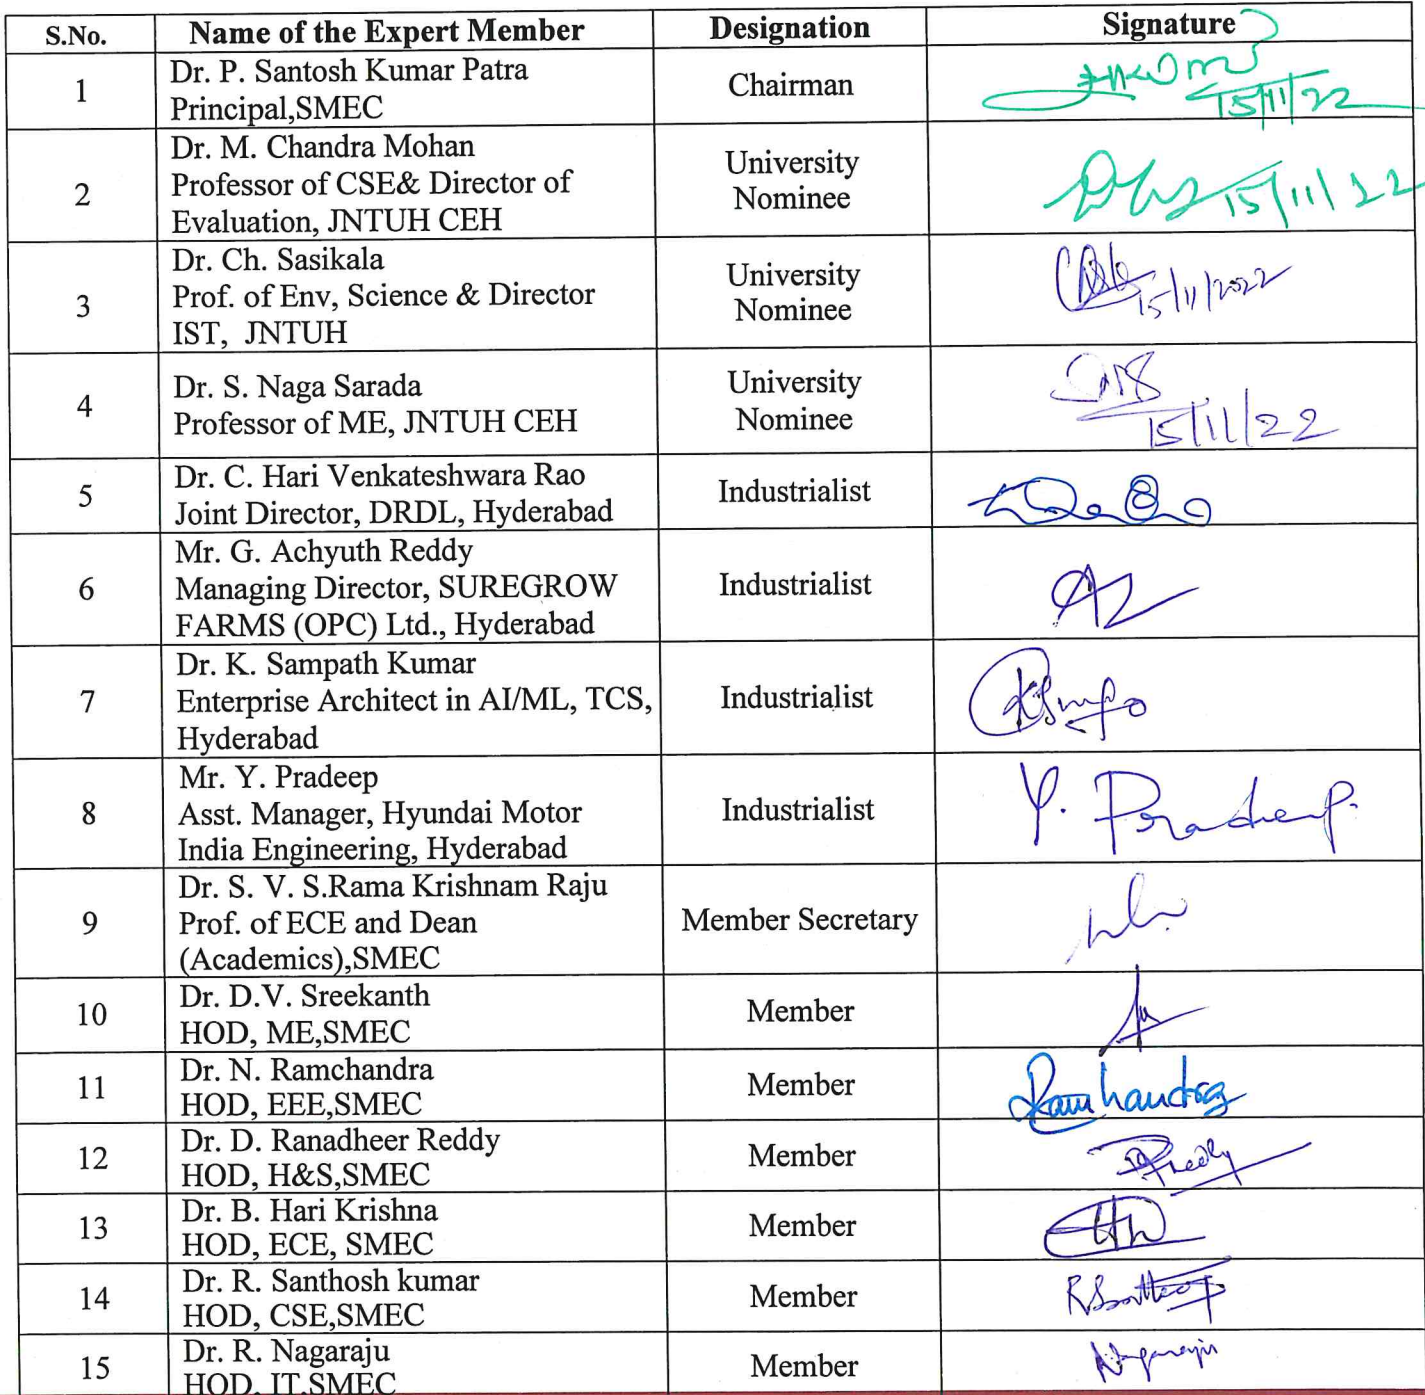 S.No. Name of the Expert Member Designation Signature
1 Dr. P. Santosh Kumar Patra
Principal,SMEC
Chairman
15/11/22
2 Dr. M. Chandra Mohan
Professor of CSE& Director of
Evaluation, JNTUH CEH
University
Nominee
15/11/22
3 Dr. Ch. Sasikala
Prof. of Env, Science & Director
IST, JNTUH
University
Nominee
15/11/2022
4 Dr. S. Naga Sarada
Professor of ME, JNTUH CEH
University
Nominee
15/11/22
5 Dr. C. Hari Venkateshwara Rao
Joint Director, DRDL, Hyderabad
Industrialist
6 Mr. G. Achyuth Reddy
Managing Director, SUREGROW
FARMS (OPC) Ltd., Hyderabad
Industrialist
7 Dr. K. Sampath Kumar
Enterprise Architect in AI/ML, TCS,
Hyderabad
Industrialist
8 Mr. Y. Pradeep
Asst. Manager, Hyundai Motor
India Engineering, Hyderabad
Industrialist
Y. Pradeep.
9 Dr. S. V. S.Rama Krishnam Raju
Prof. of ECE and Dean
(Academics),SMEC
Member Secretary
10 Dr. D.V. Sreekanth
HOD, ME,SMEC
Member
11 Dr. N. Ramchandra
HOD, EEE,SMEC
Member
Ramchandra
12 Dr. D. Ranadheer Reddy
HOD, H&S,SMEC
Member
13 Dr. B. Hari Krishna
HOD, ECE, SMEC
Member
14 Dr. R. Santhosh kumar
HOD, CSE,SMEC
Member
15 Dr. R. Nagaraju
HOD, IT,SMEC
Member
Nagaraju